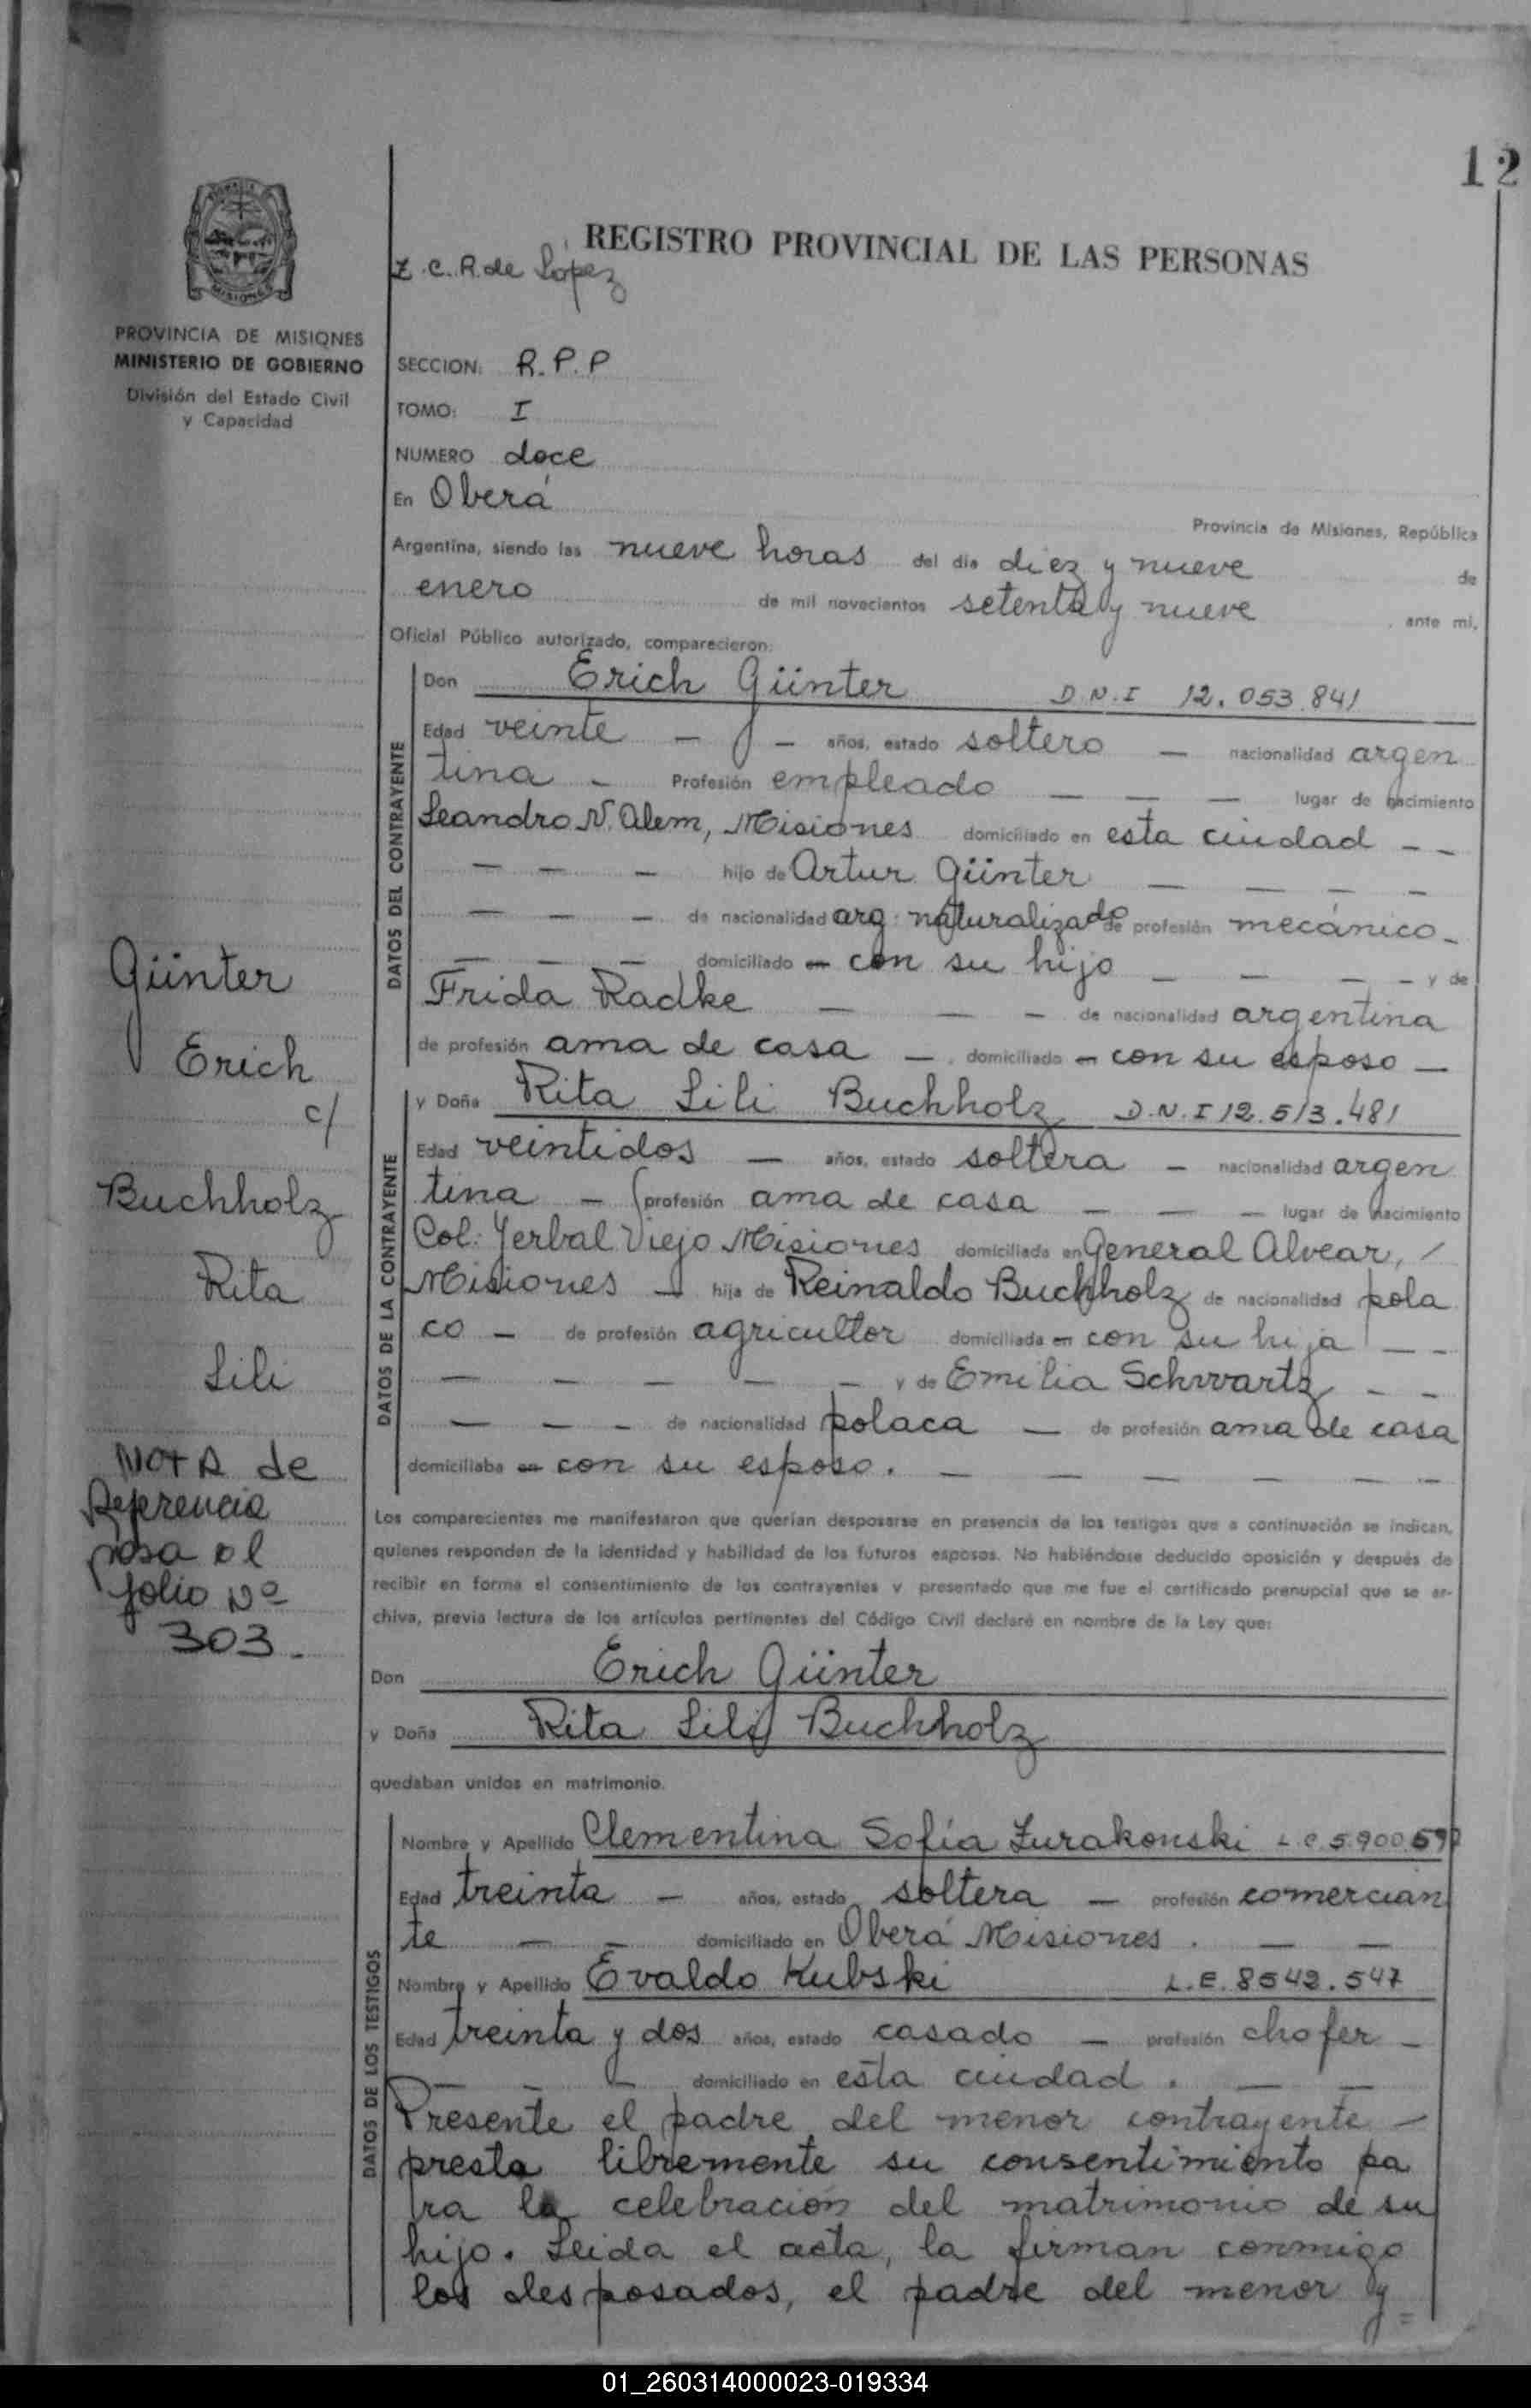 12
REGISTRO PROVINCIAL DE LAS PERSONAS
Z.C.R. de López
MISIONES
PROVINCIA DE MISIONES
MINISTERIO DE GOBIERNO
División del Estado Civil
y Capacidad
SECCION: R.P.P
TOMO: I
NUMERO doce
En Oberá
Provincia de Misiones, República
Argentina, siendo las nueve horas del día diez y nueve de
enero de mil novecientos setenta y nueve, ante mi,
Oficial Público autorizado, comparecieron:
DATOS DEL CONTRAYENTE
Don Erich Günter D.N.I 12.053.841
Edad veinte — — años, estado soltero — nacionalidad argen
tina — Profesión empleado — — — lugar de nacimiento
Leandro N. Alem, Misiones domiciliado en esta ciudad — —
— — — hijo de Artur Günter — — — —
— — — de nacionalidad arg: naturalizado de profesión mecánico —
— — — domiciliado en con su hijo — — — — y de
Frida Radke — — — de nacionalidad argentina
de profesión ama de casa — domiciliado en con su esposo —
DATOS DE LA CONTRAYENTE
y Doña Rita Lili Buchholz D.N.I 12.513.481
Edad veintidos — años, estado soltera — nacionalidad argen
tina — profesión ama de casa — — — lugar de nacimiento
Col: Yerbal Viejo Misiones domiciliada en General Alvear, /
Misiones — hija de Reinaldo Buchholz de nacionalidad pola
co — de profesión agricultor domiciliada en con su hija — —
— — — — — y de Emilia Schwartz — —
— — — de nacionalidad polaca — de profesión ama de casa
domiciliaba en con su esposo. — — — — — —
Günter
Erich
c/
Buchholz
Rita
Lili
NOTA de
Referencia
pasa al
folio Nº
303.
Los comparecientes me manifestaron que querían desposarse en presencia de los testigos que a continuación se indican,
quienes responden de la identidad y habilidad de los futuros esposos. No habiéndose deducido oposición y después de
recibir en forma el consentimiento de los contrayentes y presentado que me fue el certificado prenupcial que se ar-
chiva, previa lectura de los artículos pertinentes del Código Civil declaré en nombre de la Ley que:
Don Erich Günter
y Doña Rita Lili Buchholz
quedaban unidos en matrimonio.
DATOS DE LOS TESTIGOS
Nombre y Apellido Clementina Sofía Zurakonski L.C. 5.900.
Edad treinta — años, estado soltera — profesión comercian
te — — domiciliado en Oberá Misiones. — —
Nombre y Apellido Evaldo Kubski L.E. 8542.547
Edad treinta y dos años, estado casado — profesión chofer —
— — — domiciliado en esta ciudad. — —
Presente el padre del menor contrayente —
presta libremente su consentimiento pa
ra la celebración del matrimonio de su
hijo. Leida el acta, la firman conmigo
los desposados, el padre del menor y =
01_260314000023-019334